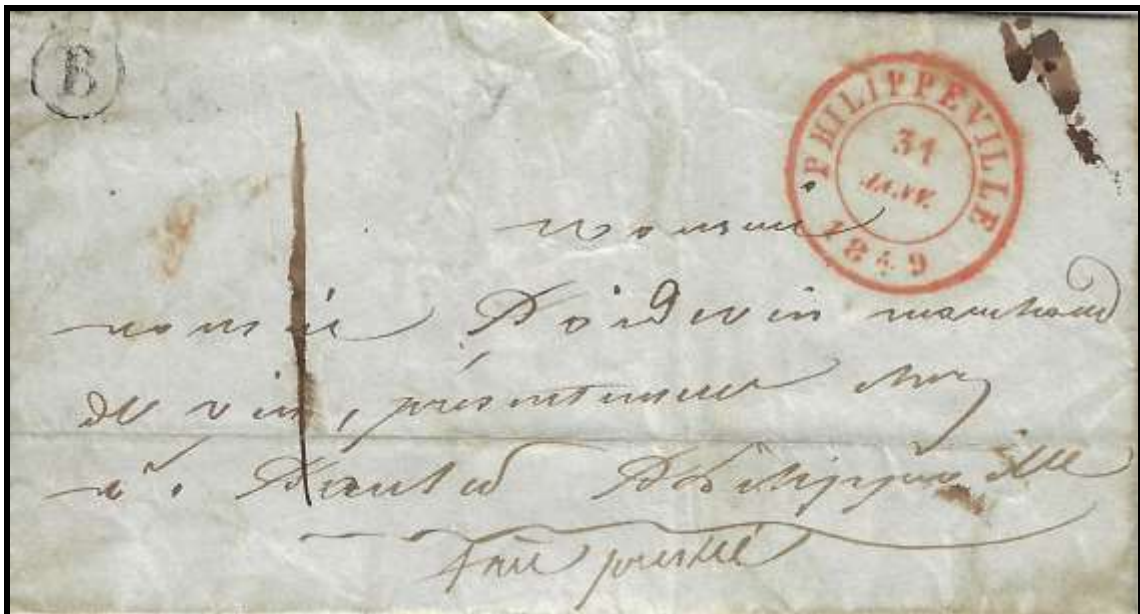 B
PHILIPPEVILLE
31
JANV.
1849
monsieur
monsieur marchand
de vin, présentement chez
Philippeville